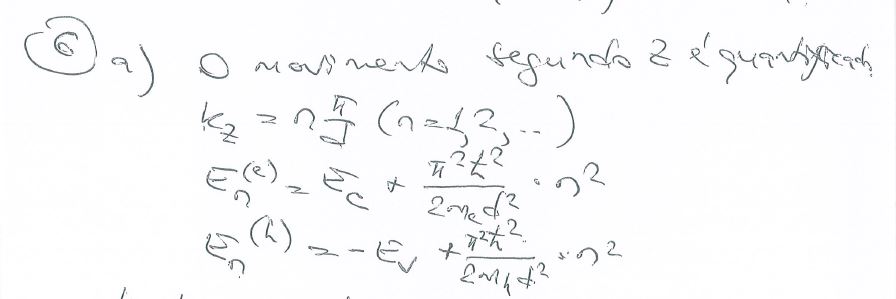 6 a) O movimento segundo z é quantificado
k_z = n π/d (n=1,2,...)
E_n^(e) = E_c + π²ħ²/(2m_e d²) · n²
E_n^(h) = -E_v + π²ħ²/(2m_h d²) · n²